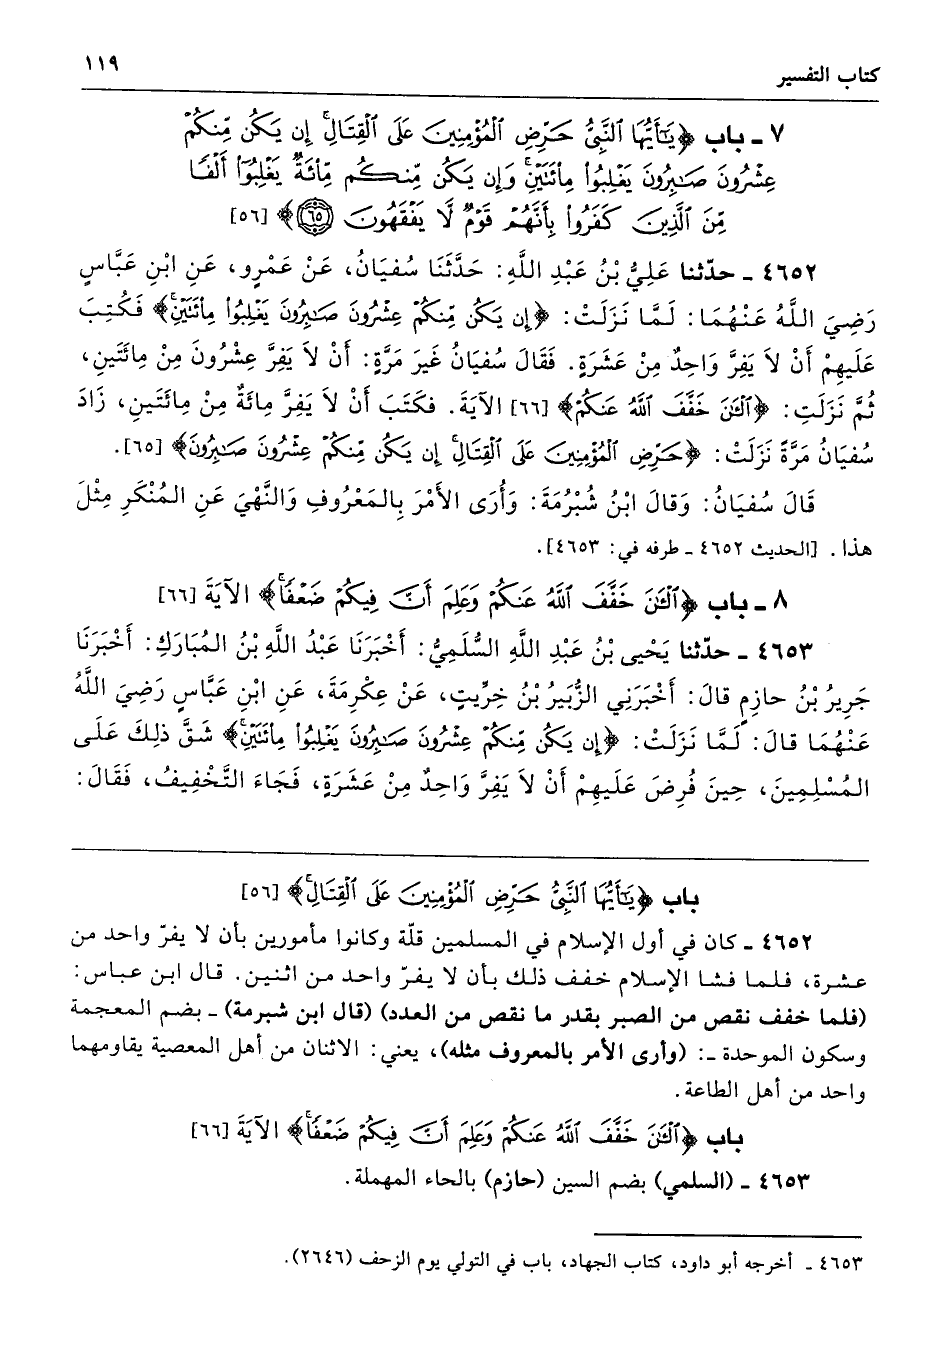 كتاب التفسير
١١٩
٧ ـ باب ﴿يَٰٓأَيُّهَا ٱلنَّبِيُّ حَرِّضِ ٱلْمُؤْمِنِينَ عَلَى ٱلْقِتَالِۚ إِن يَكُن مِّنكُمْ
عِشْرُونَ صَٰبِرُونَ يَغْلِبُوا۟ مِا۟ئَتَيْنِۚ وَإِن يَكُن مِّنكُم مِّا۟ئَةٌ يَغْلِبُوٓا۟ أَلْفًا
مِّنَ ٱلَّذِينَ كَفَرُوا۟ بِأَنَّهُمْ قَوْمٌ لَّا يَفْقَهُونَ ٦٥﴾ [٥٦]
٤٦٥٢ ـ حدّثنا عَلِيُّ بْنُ عَبْدِ اللَّهِ: حَدَّثَنَا سُفيَانُ، عَنْ عَمْرٍو، عَنِ ابْنِ عَبَّاسٍ
رَضِيَ اللَّهُ عَنْهُمَا: لَمَّا نَزَلَتْ: ﴿إِن يَكُن مِّنكُمْ عِشْرُونَ صَٰبِرُونَ يَغْلِبُوا۟ مِا۟ئَتَيْنِۚ﴾ فَكُتِبَ
عَلَيهِمْ أَنْ لاَ يَفِرَّ وَاحِدٌ مِنْ عَشَرَةٍ. فَقَالَ سُفيَانُ غَيرَ مَرَّةٍ: أَنْ لاَ يَفِرَّ عِشْرُونَ مِنْ مِائَتَينِ،
ثُمَّ نَزَلَتِ: ﴿ٱلْـَٰٔنَ خَفَّفَ ٱللَّهُ عَنكُمْ﴾ [٦٦] الآيَةَ. فكَتَبَ أَنْ لاَ يَفِرَّ مِائَةٌ مِنْ مِائَتَينِ، زَادَ
سُفيَانُ مَرَّةً نَزَلَتْ: ﴿حَرِّضِ ٱلْمُؤْمِنِينَ عَلَى ٱلْقِتَالِۚ إِن يَكُن مِّنكُمْ عِشْرُونَ صَٰبِرُونَ﴾ [٦٥].
قَالَ سُفيَانُ: وَقالَ ابْنُ شُبْرُمَةَ: وَأُرَى الأَمْرَ بِالمَعْرُوفِ وَالنَّهْيَ عَنِ المُنْكَرِ مِثْلَ
هذا. [الحديث ٤٦٥٢ ـ طرفه في: ٤٦٥٣].
٨ ـ باب ﴿ٱلْـَٰٔنَ خَفَّفَ ٱللَّهُ عَنكُمْ وَعَلِمَ أَنَّ فِيكُمْ ضَعْفًاۚ﴾ الآيَةَ [٦٦]
٤٦٥٣ ـ حدّثنا يَحْيى بْنُ عَبْدِ اللَّهِ السُّلَمِيُّ: أَخْبَرَنَا عَبْدُ اللَّهِ بْنُ المُبَارَكِ: أَخْبَرَنَا
جَرِيرُ بْنُ حازِمٍ قالَ: أَخْبَرَنِي الزُّبَيرُ بْنُ خِرِّيتٍ، عَنْ عِكْرِمَةَ، عَنِ ابْنِ عَبَّاسٍ رَضِيَ اللَّهُ
عَنْهُمَا قالَ: لَمَّا نَزَلَتْ: ﴿إِن يَكُن مِّنكُمْ عِشْرُونَ صَٰبِرُونَ يَغْلِبُوا۟ مِا۟ئَتَيْنِۚ﴾ شَقَّ ذلِكَ عَلَى
المُسْلِمِينَ، حِينَ فُرِضَ عَلَيهِمْ أَنْ لاَ يَفِرَّ وَاحِدٌ مِنْ عَشَرَةٍ، فَجَاءَ التَّخْفِيفُ، فَقَالَ:
باب ﴿يَٰٓأَيُّهَا ٱلنَّبِيُّ حَرِّضِ ٱلْمُؤْمِنِينَ عَلَى ٱلْقِتَالِۚ﴾ [٥٦]
٤٦٥٢ ـ كان في أول الإسلام في المسلمين قلّة وكانوا مأمورين بأن لا يفرّ واحد من
عشرة، فلما فشا الإسلام خفف ذلك بأن لا يفرّ واحد من اثنين. قال ابن عباس:
(فلما خفف نقص من الصبر بقدر ما نقص من العدد) (قال ابن شبرمة) ـ بضم المعجمة
وسكون الموحدة ـ: (وأرى الأمر بالمعروف مثله)، يعني: الاثنان من أهل المعصية يقاومهما
واحد من أهل الطاعة.
باب ﴿ٱلْـَٰٔنَ خَفَّفَ ٱللَّهُ عَنكُمْ وَعَلِمَ أَنَّ فِيكُمْ ضَعْفًاۚ﴾ الآيَةَ [٦٦]
٤٦٥٣ ـ (السلمي) بضم السين (حازم) بالحاء المهملة.
٤٦٥٣ ـ أخرجه أبو داود، كتاب الجهاد، باب في التولي يوم الزحف (٢٦٤٦).